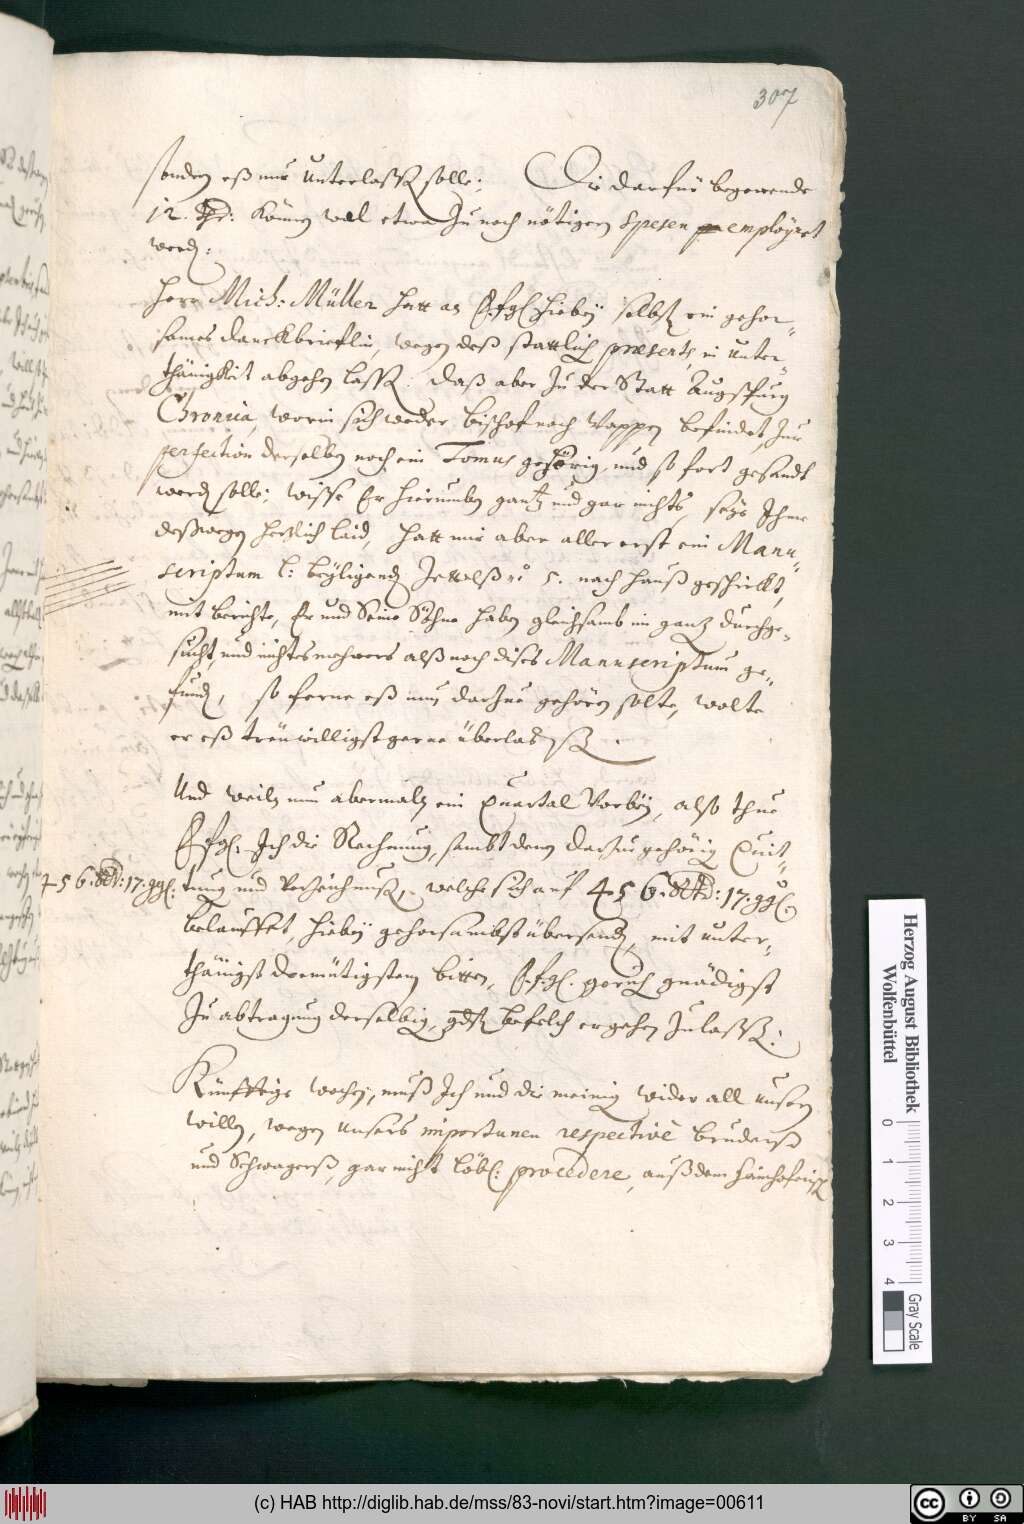 307
sonder eß nur Unterlassen solle; Die darfür begerende
12. Rd: können wol etwa Zu noch nötigen spesen employret
werden:
Herr Mich: Müller hatt an E.f.gl. hiebey selbst ein gehor-
sames danckbrieflin, wegen deß stattlich præsents, in Unter-
thänigkeit abgehen lassen. Daß aber Zu der Statt Augspurg
Chronica, worin sich weder bischof noch Wappen befindet, Zur
perfection derselben noch ein Tomus gehörig, und so fort gesandt
werden solle; wisse Er hierumben gantz und gar nichts, seye Ihme
deßwegen hertzlich laid, hatt mir aber aller erst ein Manu-
scriptum l: beyligend Zettelß no 5. nach hauß geschickt,
mit berichte, Er und Seine Söhne haben gleichsamb im gantz durchge-
sucht, und nichtes mehrers alß noch dises Manuscriptum ge-
funden, so ferne eß nun darzue gehören solte, wolte
er eß treuwilligst gerne überlassen.
Und weiln nun abermaln ein Quartal Vorbey, alß thue
E.f.gl. Ich die Rechnung, sambt denen darzu gehörig Quit-
456. Rd: 17. ggl. tung und Verzeichnuß, welche sich auf 456. Rtd: 17. ggl.
belauffet, hiebey gehorsambst übersenden, mit unter-
thänigst demütigstem bitten, E.f.gl. geruh gnädigst
Zu abtragung derselbig, gdst befelch ergehen Zulassen:
Künfftige wochen, muß Ich und die meinig wider all unsern
willen, wegen unsers importunen respectivè bruderß
und Schwagerß, gar nicht löbl: procedere, auß dem Hainhoferisch
Herzog August Bibliothek
Wolfenbüttel
0 1 2 3 4
Gray Scale
(c) HAB http://diglib.hab.de/mss/83-novi/start.htm?image=00611
cc BY SA